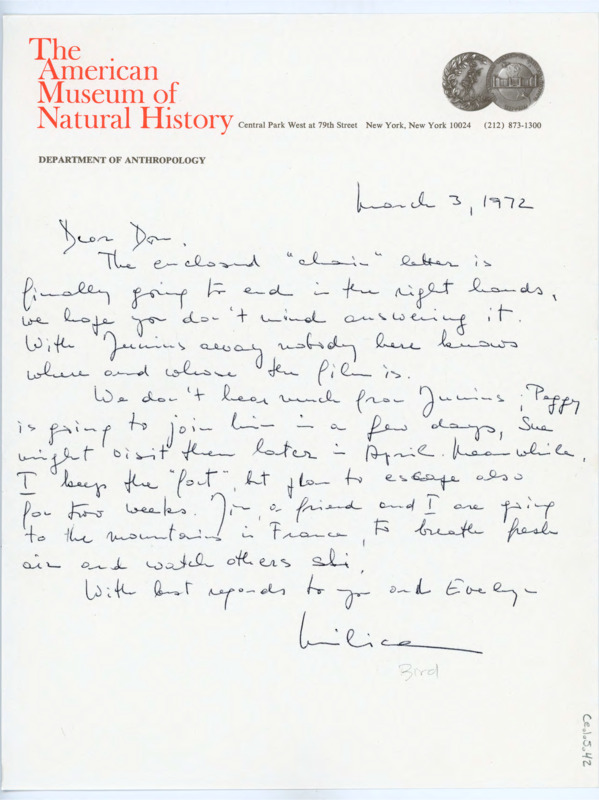 The
American
Museum of
Natural History Central Park West at 79th Street New York, New York 10024 (212) 873-1300
DEPARTMENT OF ANTHROPOLOGY
March 3, 1972
Dear Don,
The enclosed "chain" letter is
finally going to end in the right hands,
we hope you don't mind answering it.
With Junius away nobody here knows
where and whose the film is.
We don't hear much from Junius; Peggy
is going to join him in a few days, Sue
might visit them later in April. Meanwhile,
I keep the "fort", but plan to escape also
for two weeks. Jim, a friend and I are going
to the mountains in France, to breath fresh
air and watch others ski.
With best regards to you and Evelyn
Milica
Bird